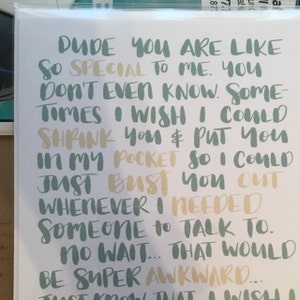 DUDE YOU ARE LIKE
SO SPECIAL TO ME. YOU
DON'T EVEN KNOW. SOME-
TIMES I WISH I COULD
SHRINK YOU & PUT YOU
IN MY POCKET SO I COULD
JUST BUST YOU OUT
WHENEVER I NEEDED
SOMEONE TO TALK TO.
NO WAIT... THAT WOULD
BE SUPER AWKWARD...
JUST KNOW THAT I WISH I